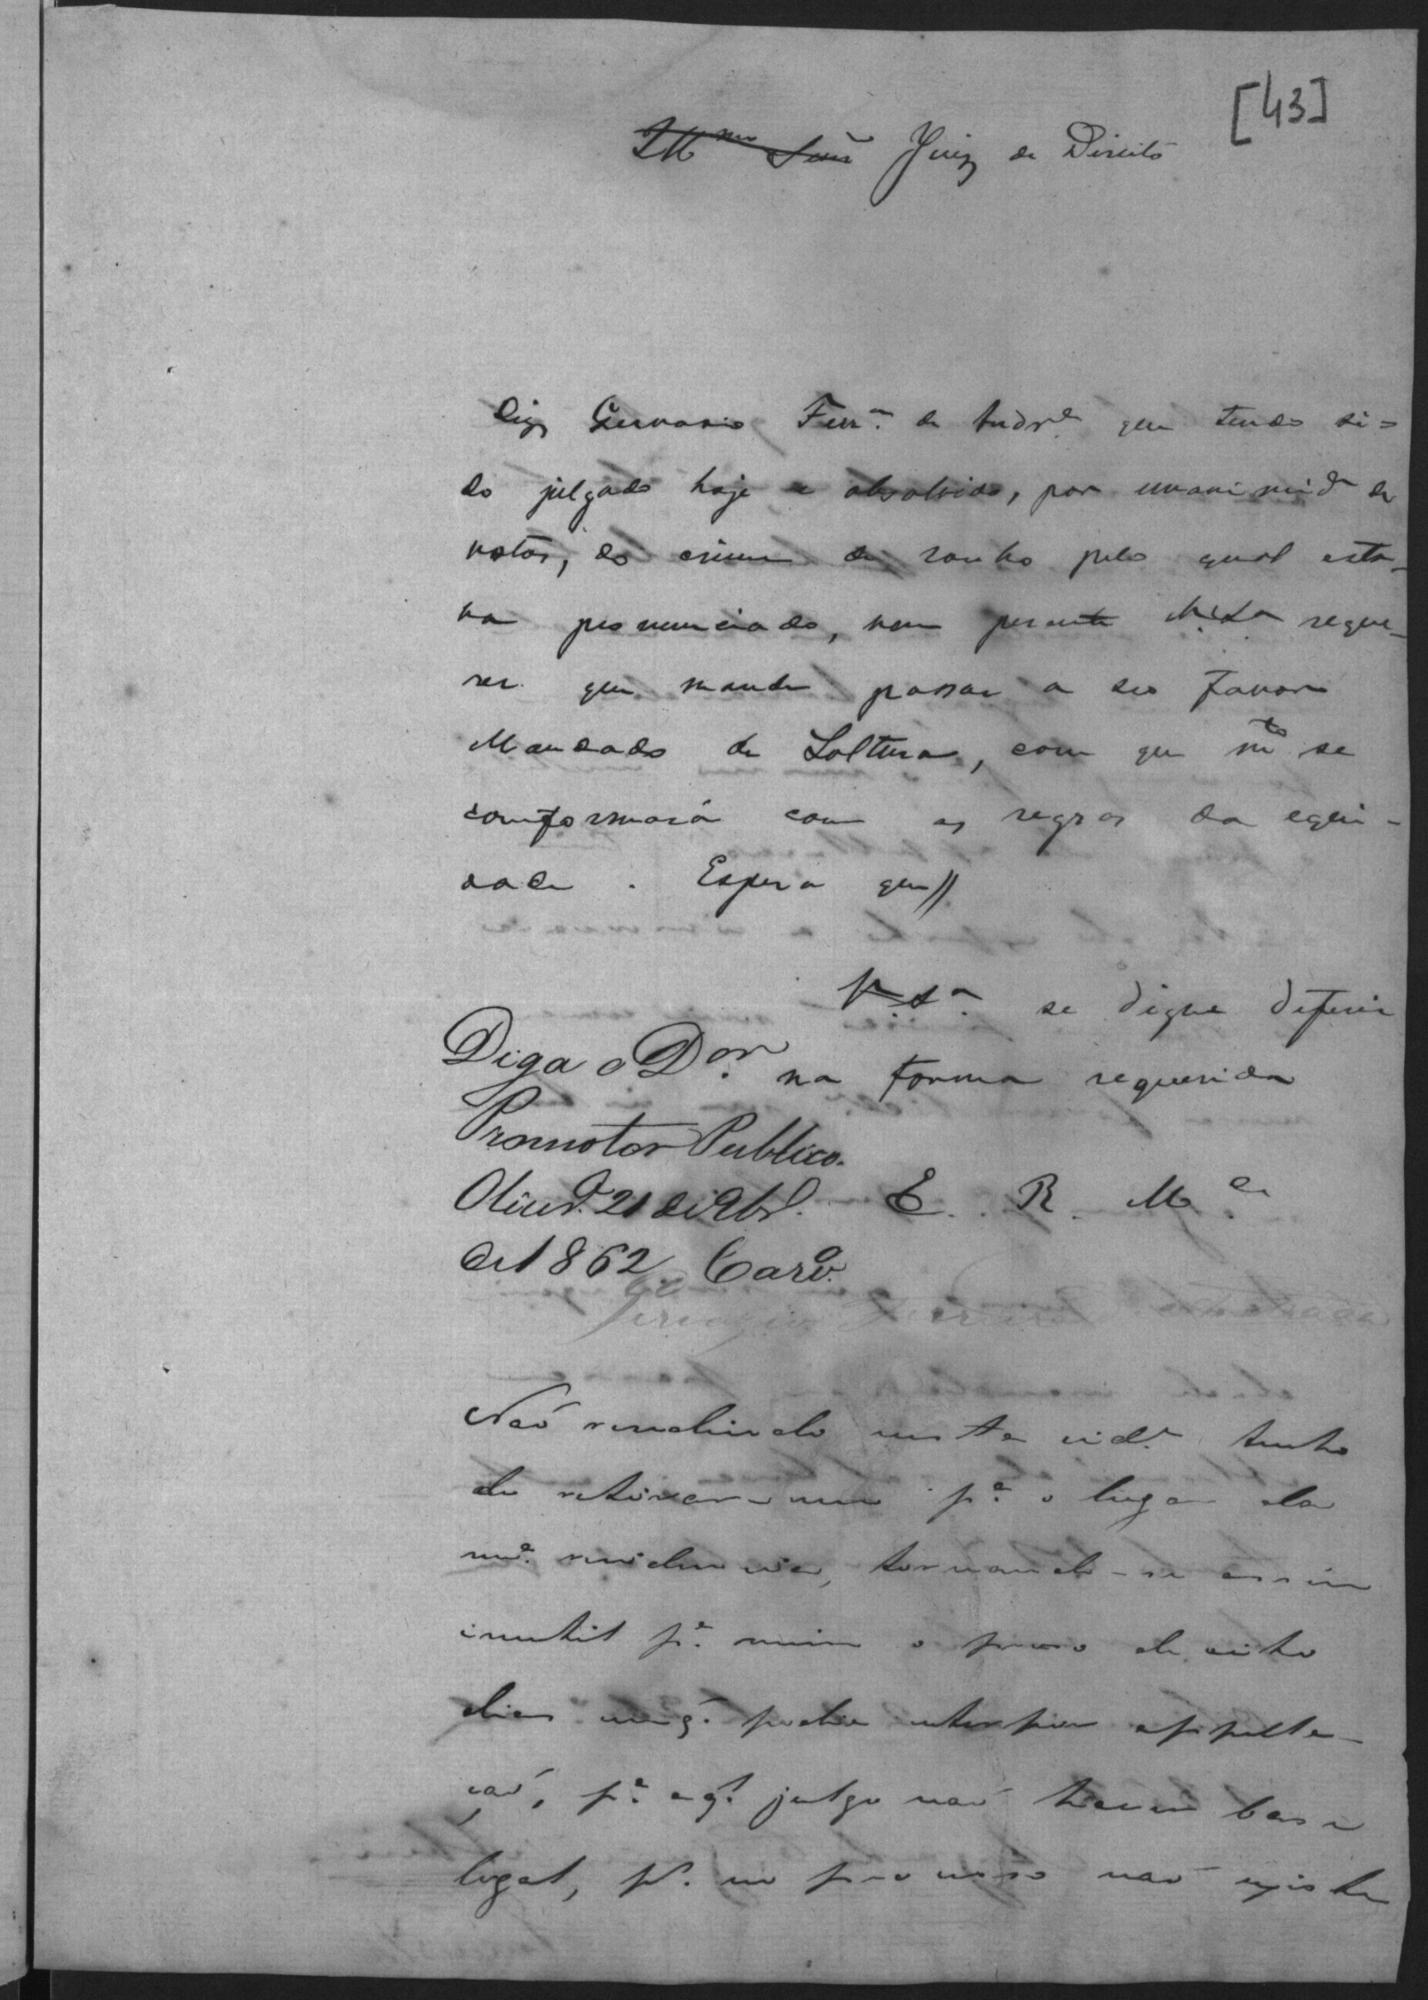 [43]
Illmo Snr̃ Juiz de Direito
Diz Gervasio Ferra. de Andre. que tendo si=
do julgado hoje e absolvido, por unanimide. de
votos, do crime de roubo pelo qual esta-
va pronunciado, vem perante V. Sa. reque-
rer que mande passar a seo favor
Mandado de Soltura, com que mto. se
conformará com as regras da equi-
dade. Espera que//
V. Sa. se digne deferir
na forma requerida
Diga o Dor.
Promotor Publico.
Olinda. 21 de Abl.
de 1862. Caro.
E. R. Mce.
Gervazio Ferreira de Andrada
Naõ residindo nesta cide. tenho
de retirar-me pa. o lugar da
ma. residencia, tornando-se assim
inutil pa. mim o praso de oito
dias em q. podia interpor appella-
çaõ, pa. a ql. julgo naõ haver base
legal, pr. no processo naõ existe